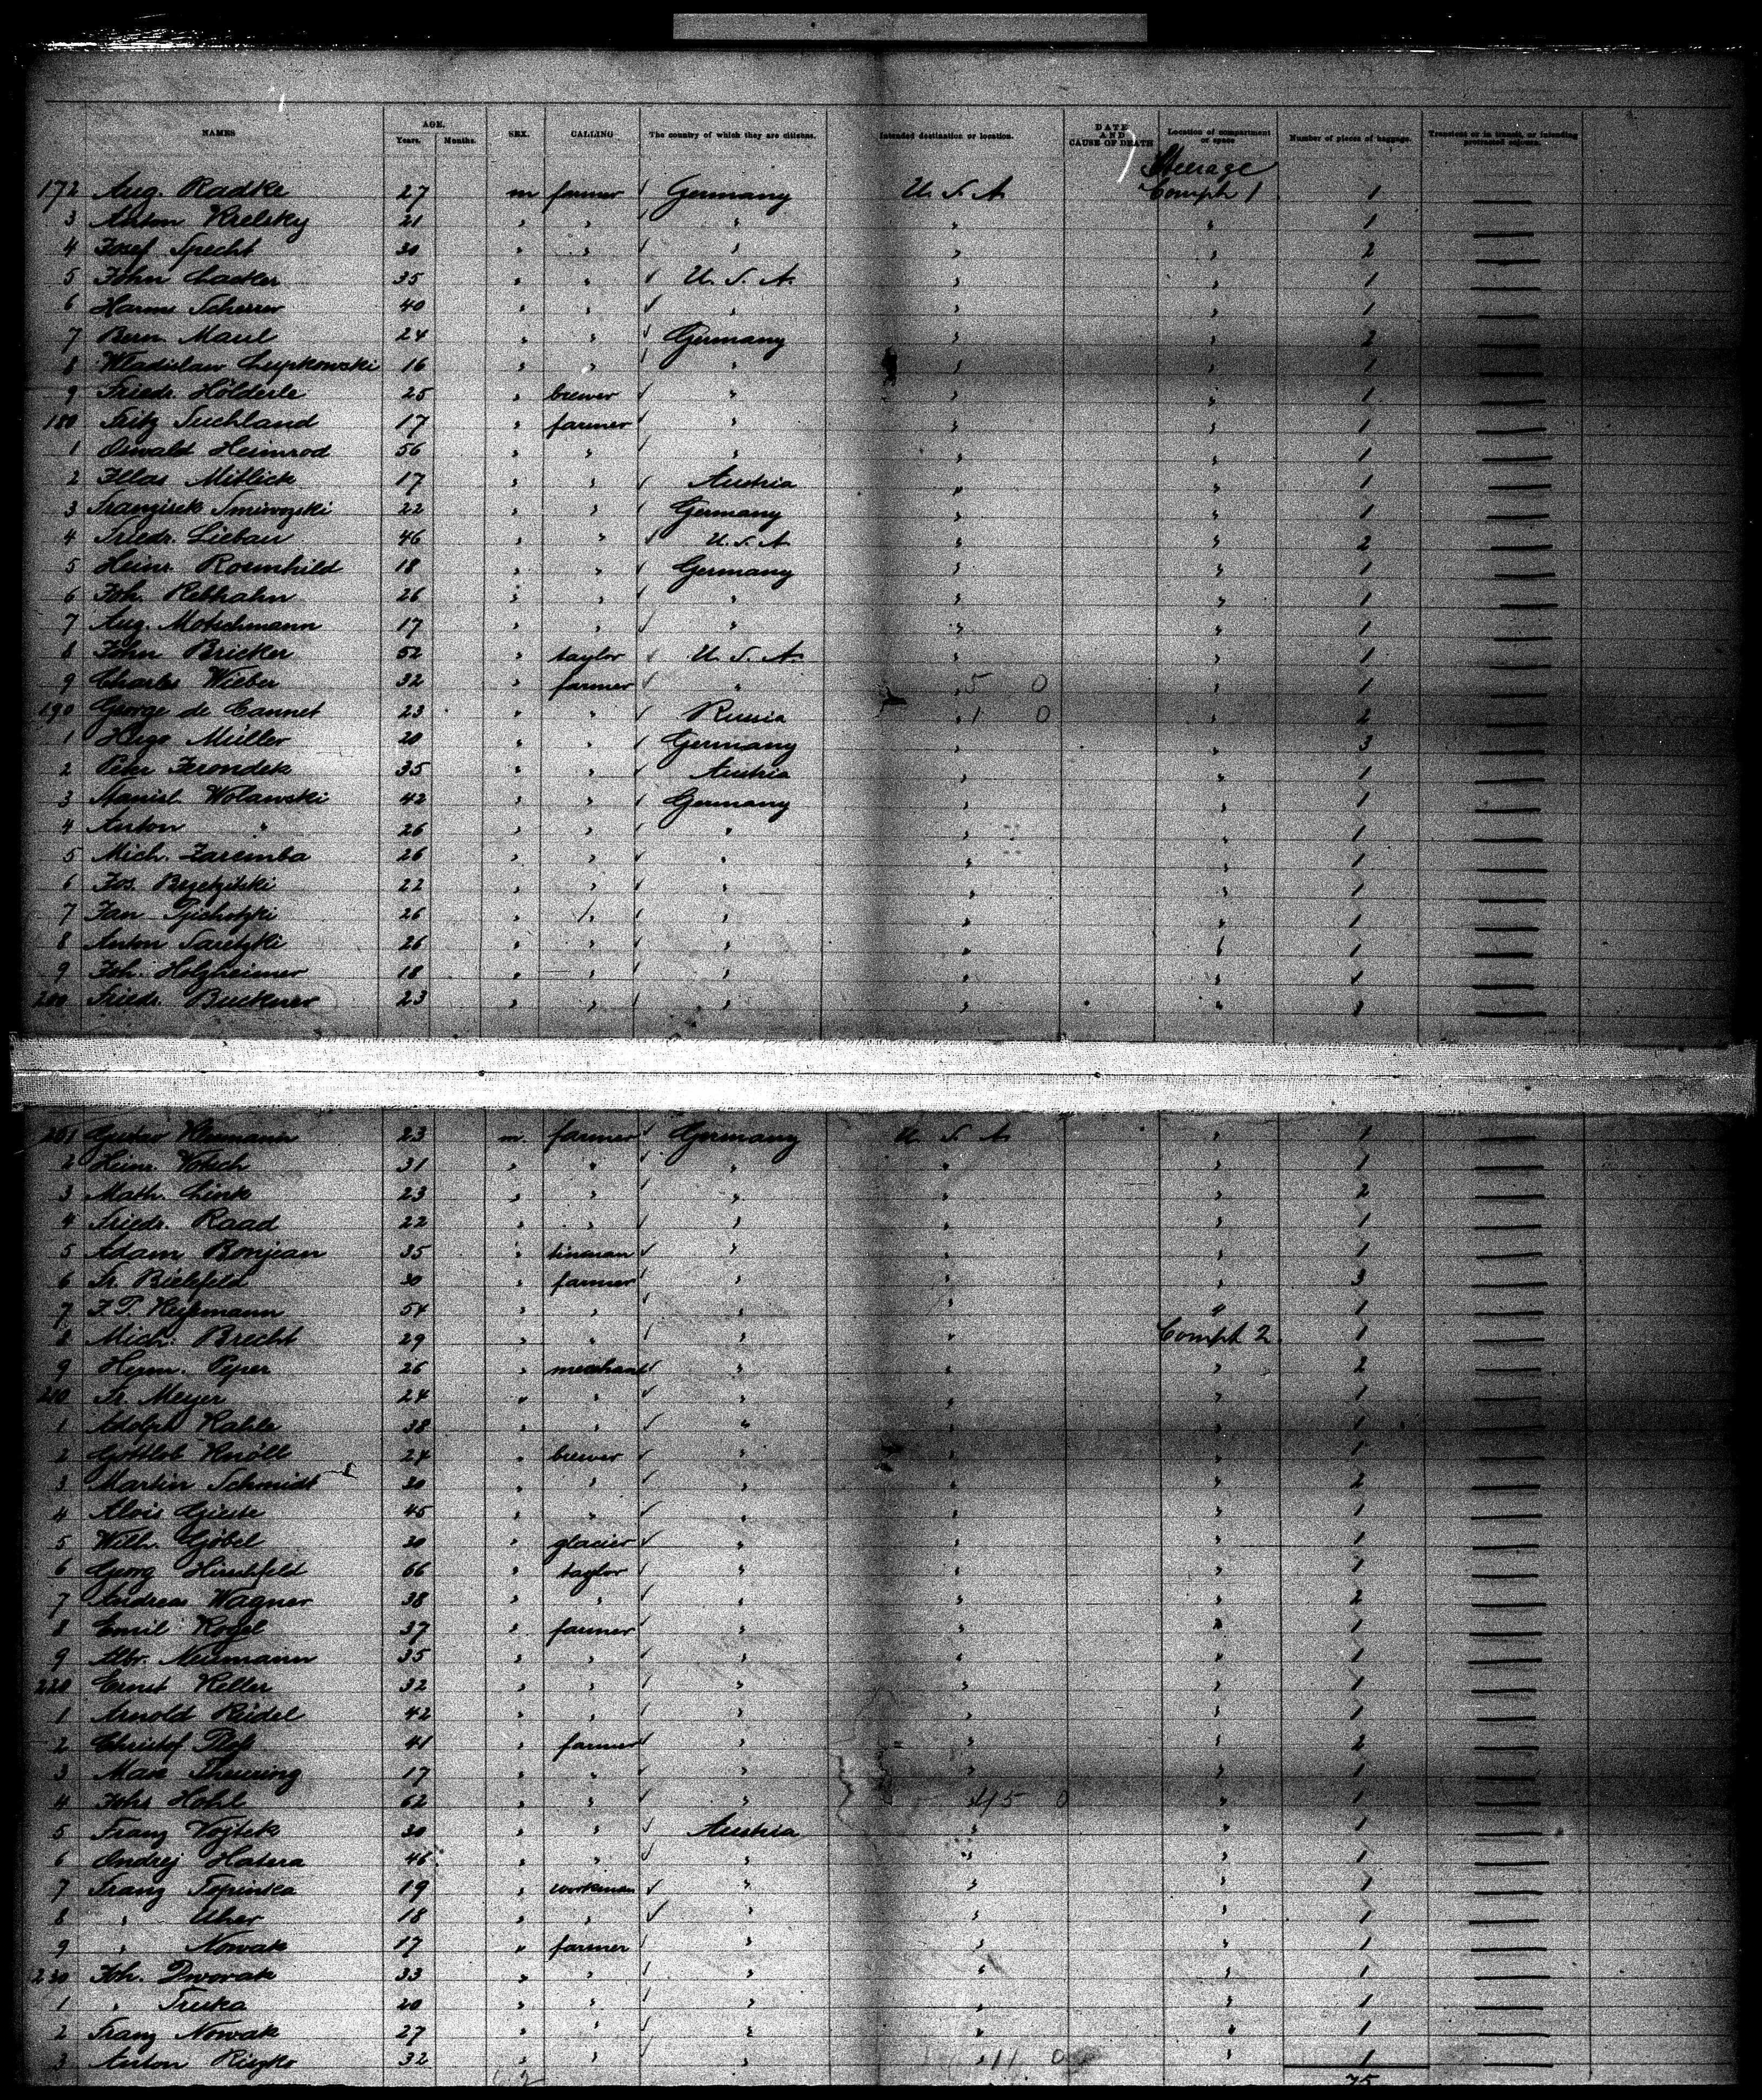 NAMES AGE. Years. Months. SEX. CALLING The country of which they are citizens. Intended destination or location. DATE AND CAUSE OF DEATH Location of compartment or space Number of pieces of baggage. Transient or in transit, or intending protracted sojourn.
Steerage
172 Aug. Radke 27 m farmer ✓ Germany U. S. A. Compt 1 1 —
3 Anton 21 " " ✓ " " " 1 —
4 Josef Specht 30 " " ✓ " " " 2 —
5 John 35 " " ✓ U. S. A. " " 1 —
6 Harms Scherrer 40 " " ✓ " " " 1 —
7 Bern. Maul 24 " " ✓ Germany " " 2 —
8 Wladislaw Lupkowski 16 " " ✓ " " " 1 —
9 Friedr. Hölderle 25 " brewer ✓ " " " 1 —
180 Fritz Suchland 17 " farmer ✓ " " " 1 —
1 Oswald Heimrod 56 " " ✓ " " " 1 —
2 Mitlick 17 " " ✓ Austria " " 1 —
3 22 " " ✓ Germany " " 1 —
4 Friedr. Liebau 46 " " ✓ U. S. A. " " 2 —
5 Heinr. Roemhild 18 " " ✓ Germany " " 1 —
6 Joh. Rebhahn 26 " " ✓ " " " 1 —
7 Aug. Motschmann 17 " " ✓ " " " 1 —
8 John Bricker 52 " taylor ✓ U. S. A. " " 1 —
9 Charles Wieber 32 " farmer ✓ " " 5 0 " 1 —
190 George de Cannet 23 " " ✓ Russia " 1 0 " 2 —
1 Hugo Müller 20 " " ✓ Germany " " 3 —
2 Peter 35 " " ✓ Austria " " 1 —
3 Stanisl. Wolanski 42 " " ✓ Germany " " 1 —
4 Anton " 26 " " ✓ " " " 1 —
5 Mich. Zaremba 26 " " ✓ " " " 1 —
6 Jos. 22 " " ✓ " " " 1 —
7 Jan 26 " " ✓ " " " 1 —
8 Anton Saretzki 26 " " ✓ " " " 1 —
9 Joh. Holzheimer 18 " " ✓ " " " 1 —
200 Friedr. Buckner 23 " " ✓ " " " 1 —
201 Gustav 23 m. farmer ✓ Germany U. S. A. " 1 —
2 Heinr. Votsch 31 " " ✓ " " " 1 —
3 Math. Link 23 " " ✓ " " " 2 —
4 Friedr. Raad 22 " " ✓ " " " 1 —
5 Adam Bonjean 35 " tinman ✓ " " " 1 —
6 Fr. Bielefeld 30 " farmer ✓ " " " 3 —
7 J. P. 54 " " ✓ " " " 1 —
8 Mich. Brecht 29 " " ✓ " " Compt 2. 1 —
9 Herm. Peper 26 " merchant ✓ " " " 2 —
210 Fr. Meyer 24 " " ✓ " " " 1 —
1 Adolph Kahle 38 " " ✓ " " " 1 —
2 Gottlob Knöll 24 " brewer ✓ " " " 1 —
3 Martin Schmidt 30 " " ✓ " " " 2 —
4 Alois 45 " " ✓ " " " 1 —
5 Wilh. Göbel 30 " glacier ✓ " " " 1 —
6 Georg Hirschfeld 66 " taylor ✓ " " " 1 —
7 Andreas Wagner 38 " " ✓ " " " 2 —
8 Emil Kogel 37 " farmer ✓ " " " 1 —
9 Albr. Neumann 35 " " ✓ " " " 1 —
220 Ernst Keller 32 " " ✓ " " " 1 —
1 Arnold Reidel 42 " " ✓ " " " 1 —
2 Christof 41 " farmer ✓ " " " 2 —
3 Max Theuring 17 " " ✓ " " " 1 —
4 Johs Hohl 62 " " ✓ " " 45 0 " 1 —
5 Franz Vojtek 30 " " ✓ Austria " " 1 —
6 Ondrej Hatera 46 " " ✓ " " " 1 —
7 Franz Topinka 19 " workman ✓ " " " 1 —
8 " Uher 18 " " ✓ " " " 1 —
9 " Nowak 17 " farmer ✓ " " " 1 —
230 Joh. Dworak 33 " " ✓ " " " 1 —
1 " Truka 20 " " ✓ " " " 1 —
2 Franz Nowak 27 " " ✓ " " " 1 —
3 Anton Riszko 32 " " ✓ " " 11 0 " 1 —
62 75